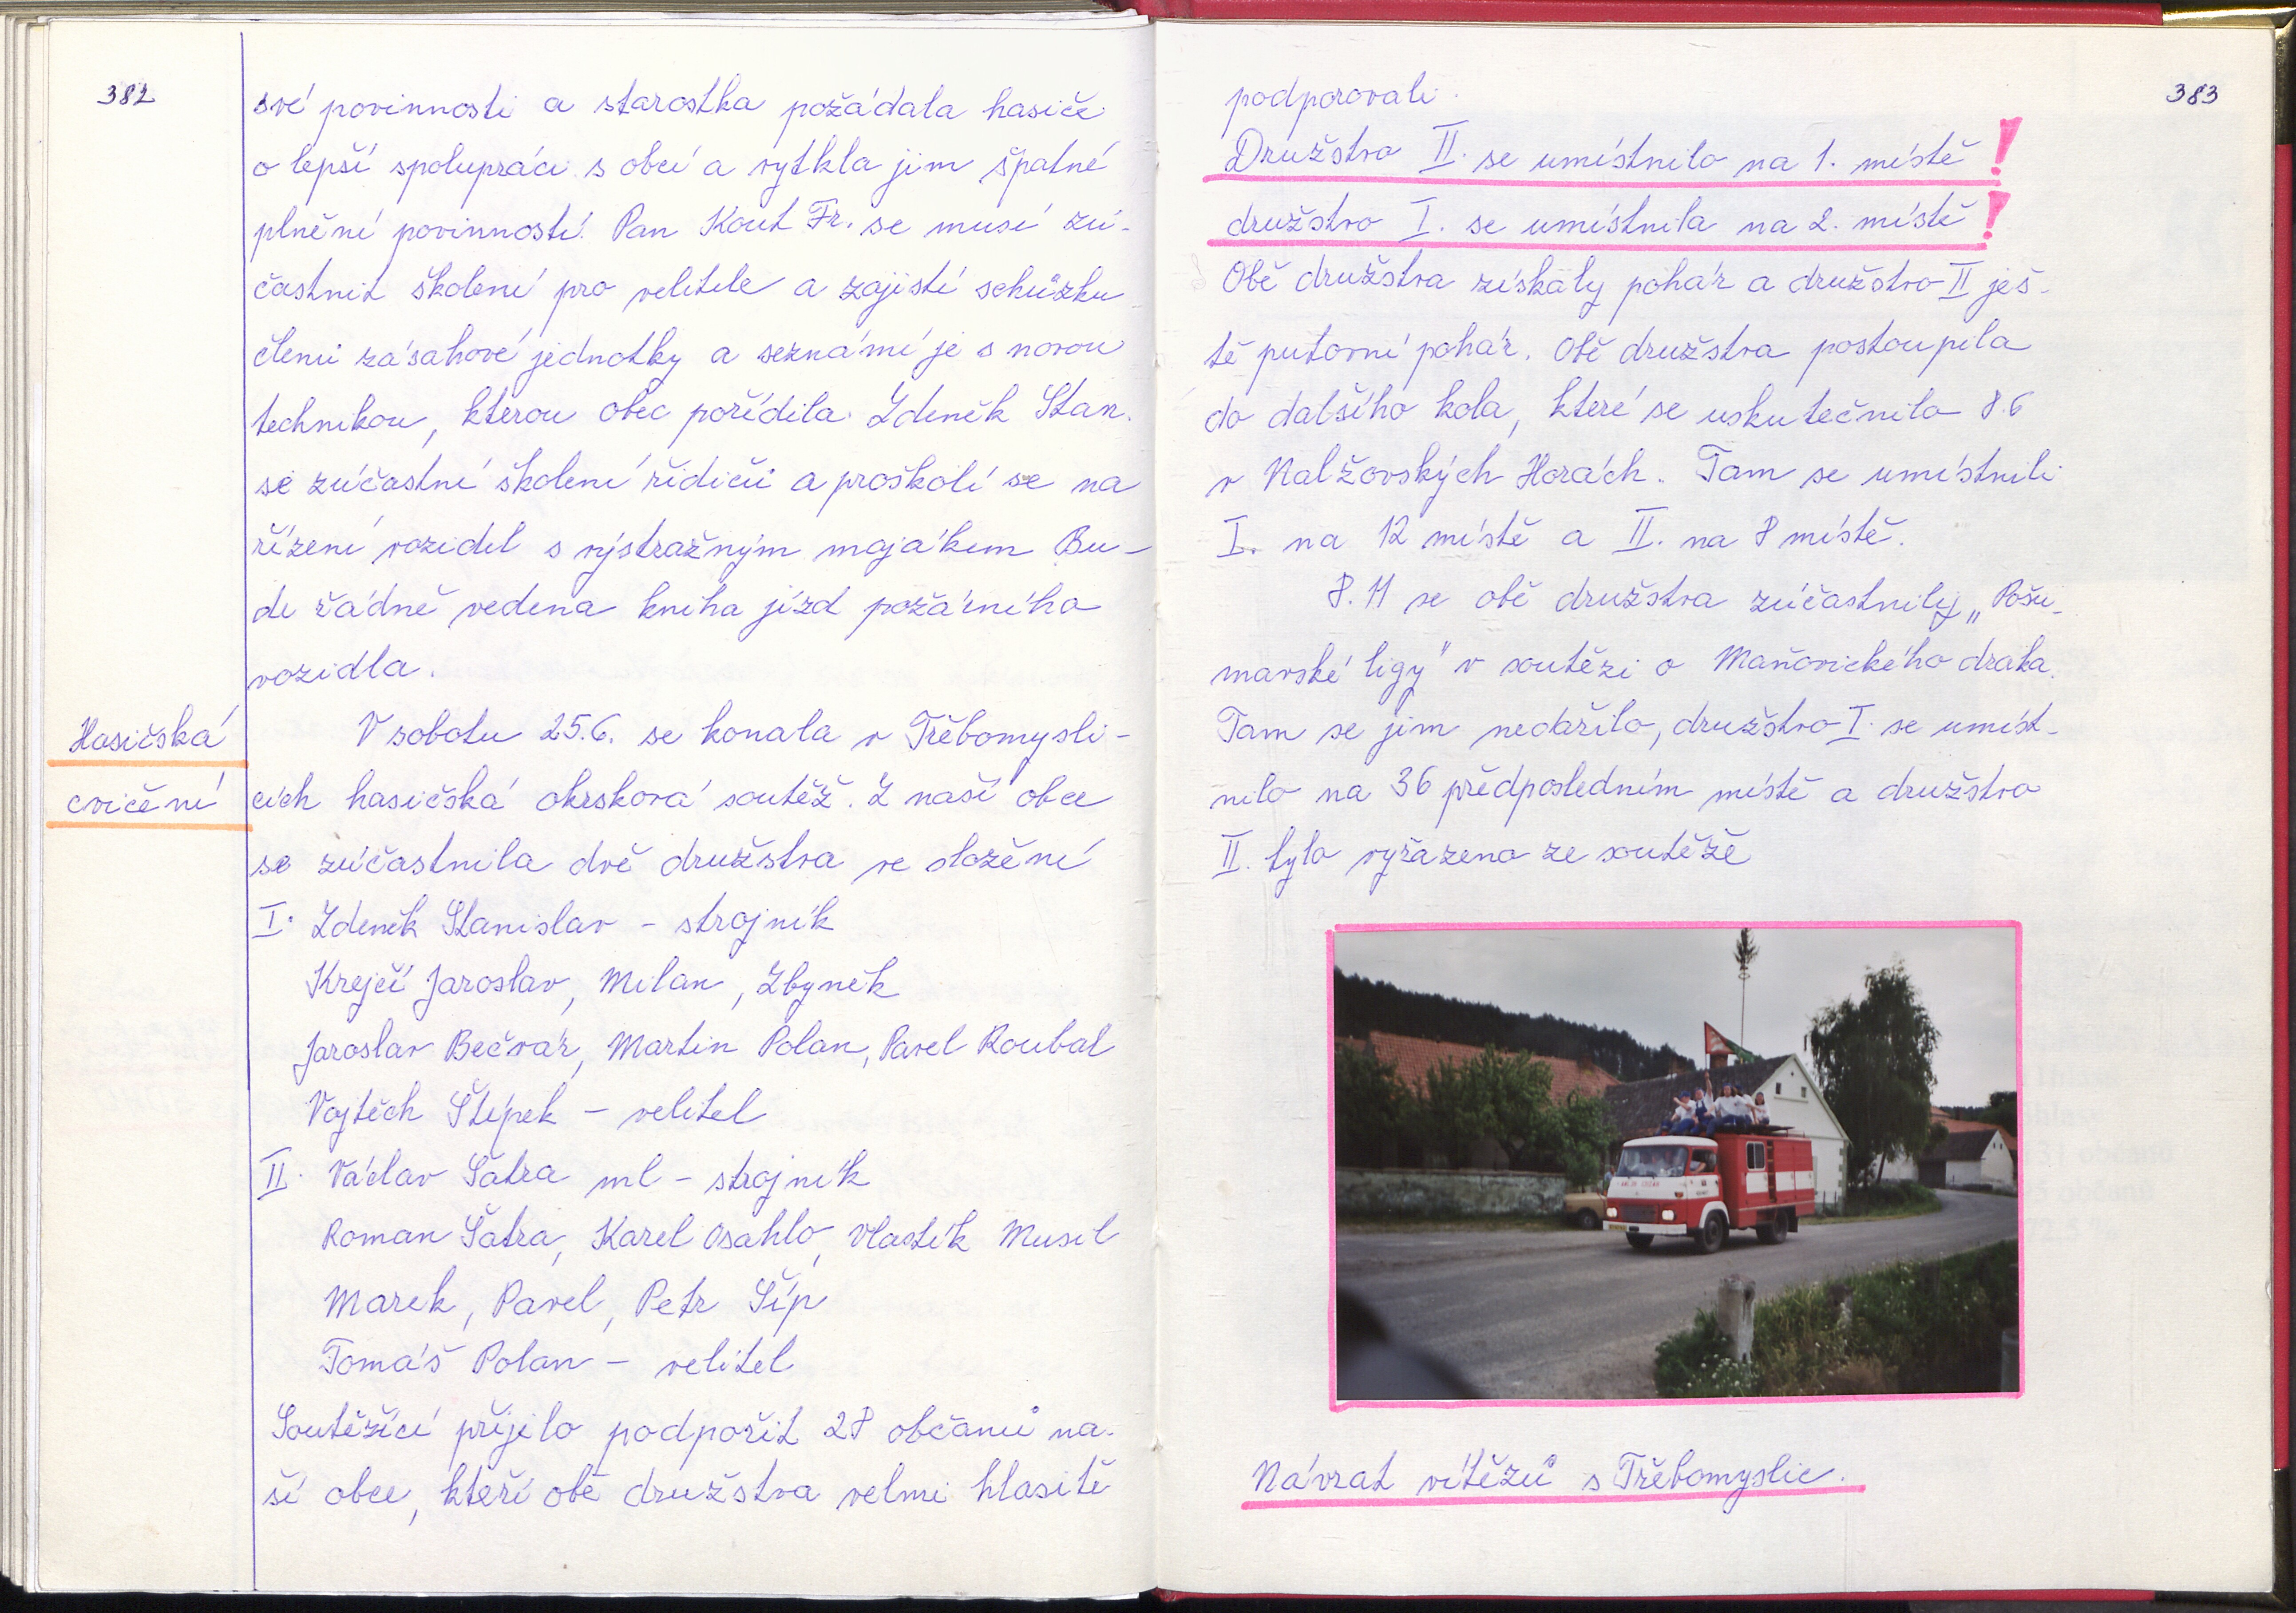 382
své povinnosti a starostka požádala hasiče
o lepší spolupráci s obcí a vytkla jim špatné
plnění povinností. Pan Kout Fr. se musí zú-
častnit školení pro velitele a zajistí schůzku
členů zásahové jednotky a seznámí je s novou
technikou, kterou obec pořídila. Zdeněk Stan.
se zúčastní školení řidičů a proškolí se na
řízení vozidel s výstražným majákem Bu-
de řádně vedena kniha jízd požárního
vozidla.
Hasičská
cvičení
V sobotu 25.6. se konala v Třebomysli-
cích hasičská okrsková soutěž. Z naší obce
se zúčastnila dvě družstva ve složení
I. Zdeněk Stanislav - strojník
Krejčí Jaroslav, Milan, Zbyněk
Jaroslav Bečvář, Martin Polan, Pavel Roubal
Vojtěch Štípek - velitel
II. Václav Šatra ml - strojník
Roman Šatra, Karel Osahlo, Vlastík Musil
Marek, Pavel, Petr Šíp
Tomáš Polan - velitel
Soutěžící přijelo podpořit 28 občanů na-
ší obce, kteří obě družstva velmi hlasitě
383
podporovali.
Družstvo II. se umístnilo na 1. místě!
družstvo I. se umístnila na 2. místě!
Obě družstva získaly pohár a družstvo II ješ-
tě putovní pohár. Obě družstva postoupila
do dalšího kola, které se uskutečnilo 8.6
v Nalžovských Horách. Tam se umístnili
I. na 12 místě a II. na 8 místě.
8.11 se obě družstva zúčastnily „Pošu-
mavské ligy" v soutěži o Maňovického draka.
Tam se jim nedařilo, družstvo I. se umíst-
nilo na 36 předposledním místě a družstvo
II. bylo vyřazeno ze soutěže
Návrat vítězů s Třebomyslic.